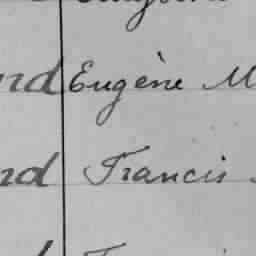 nd Eugène M
nd Francis